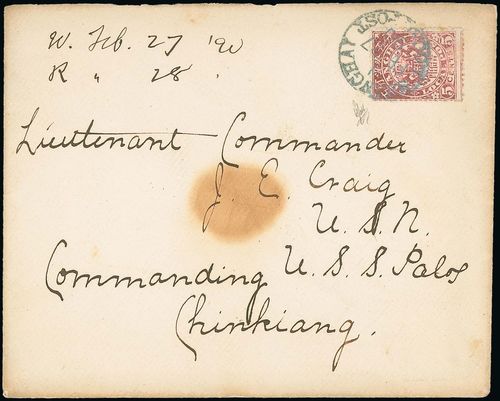 W. Feb. 27 '90
R " 28
Lieutenant Commander
J. E. Craig
U. S. N.
Commanding U. S. S. Palos
Chinkiang.
5
5